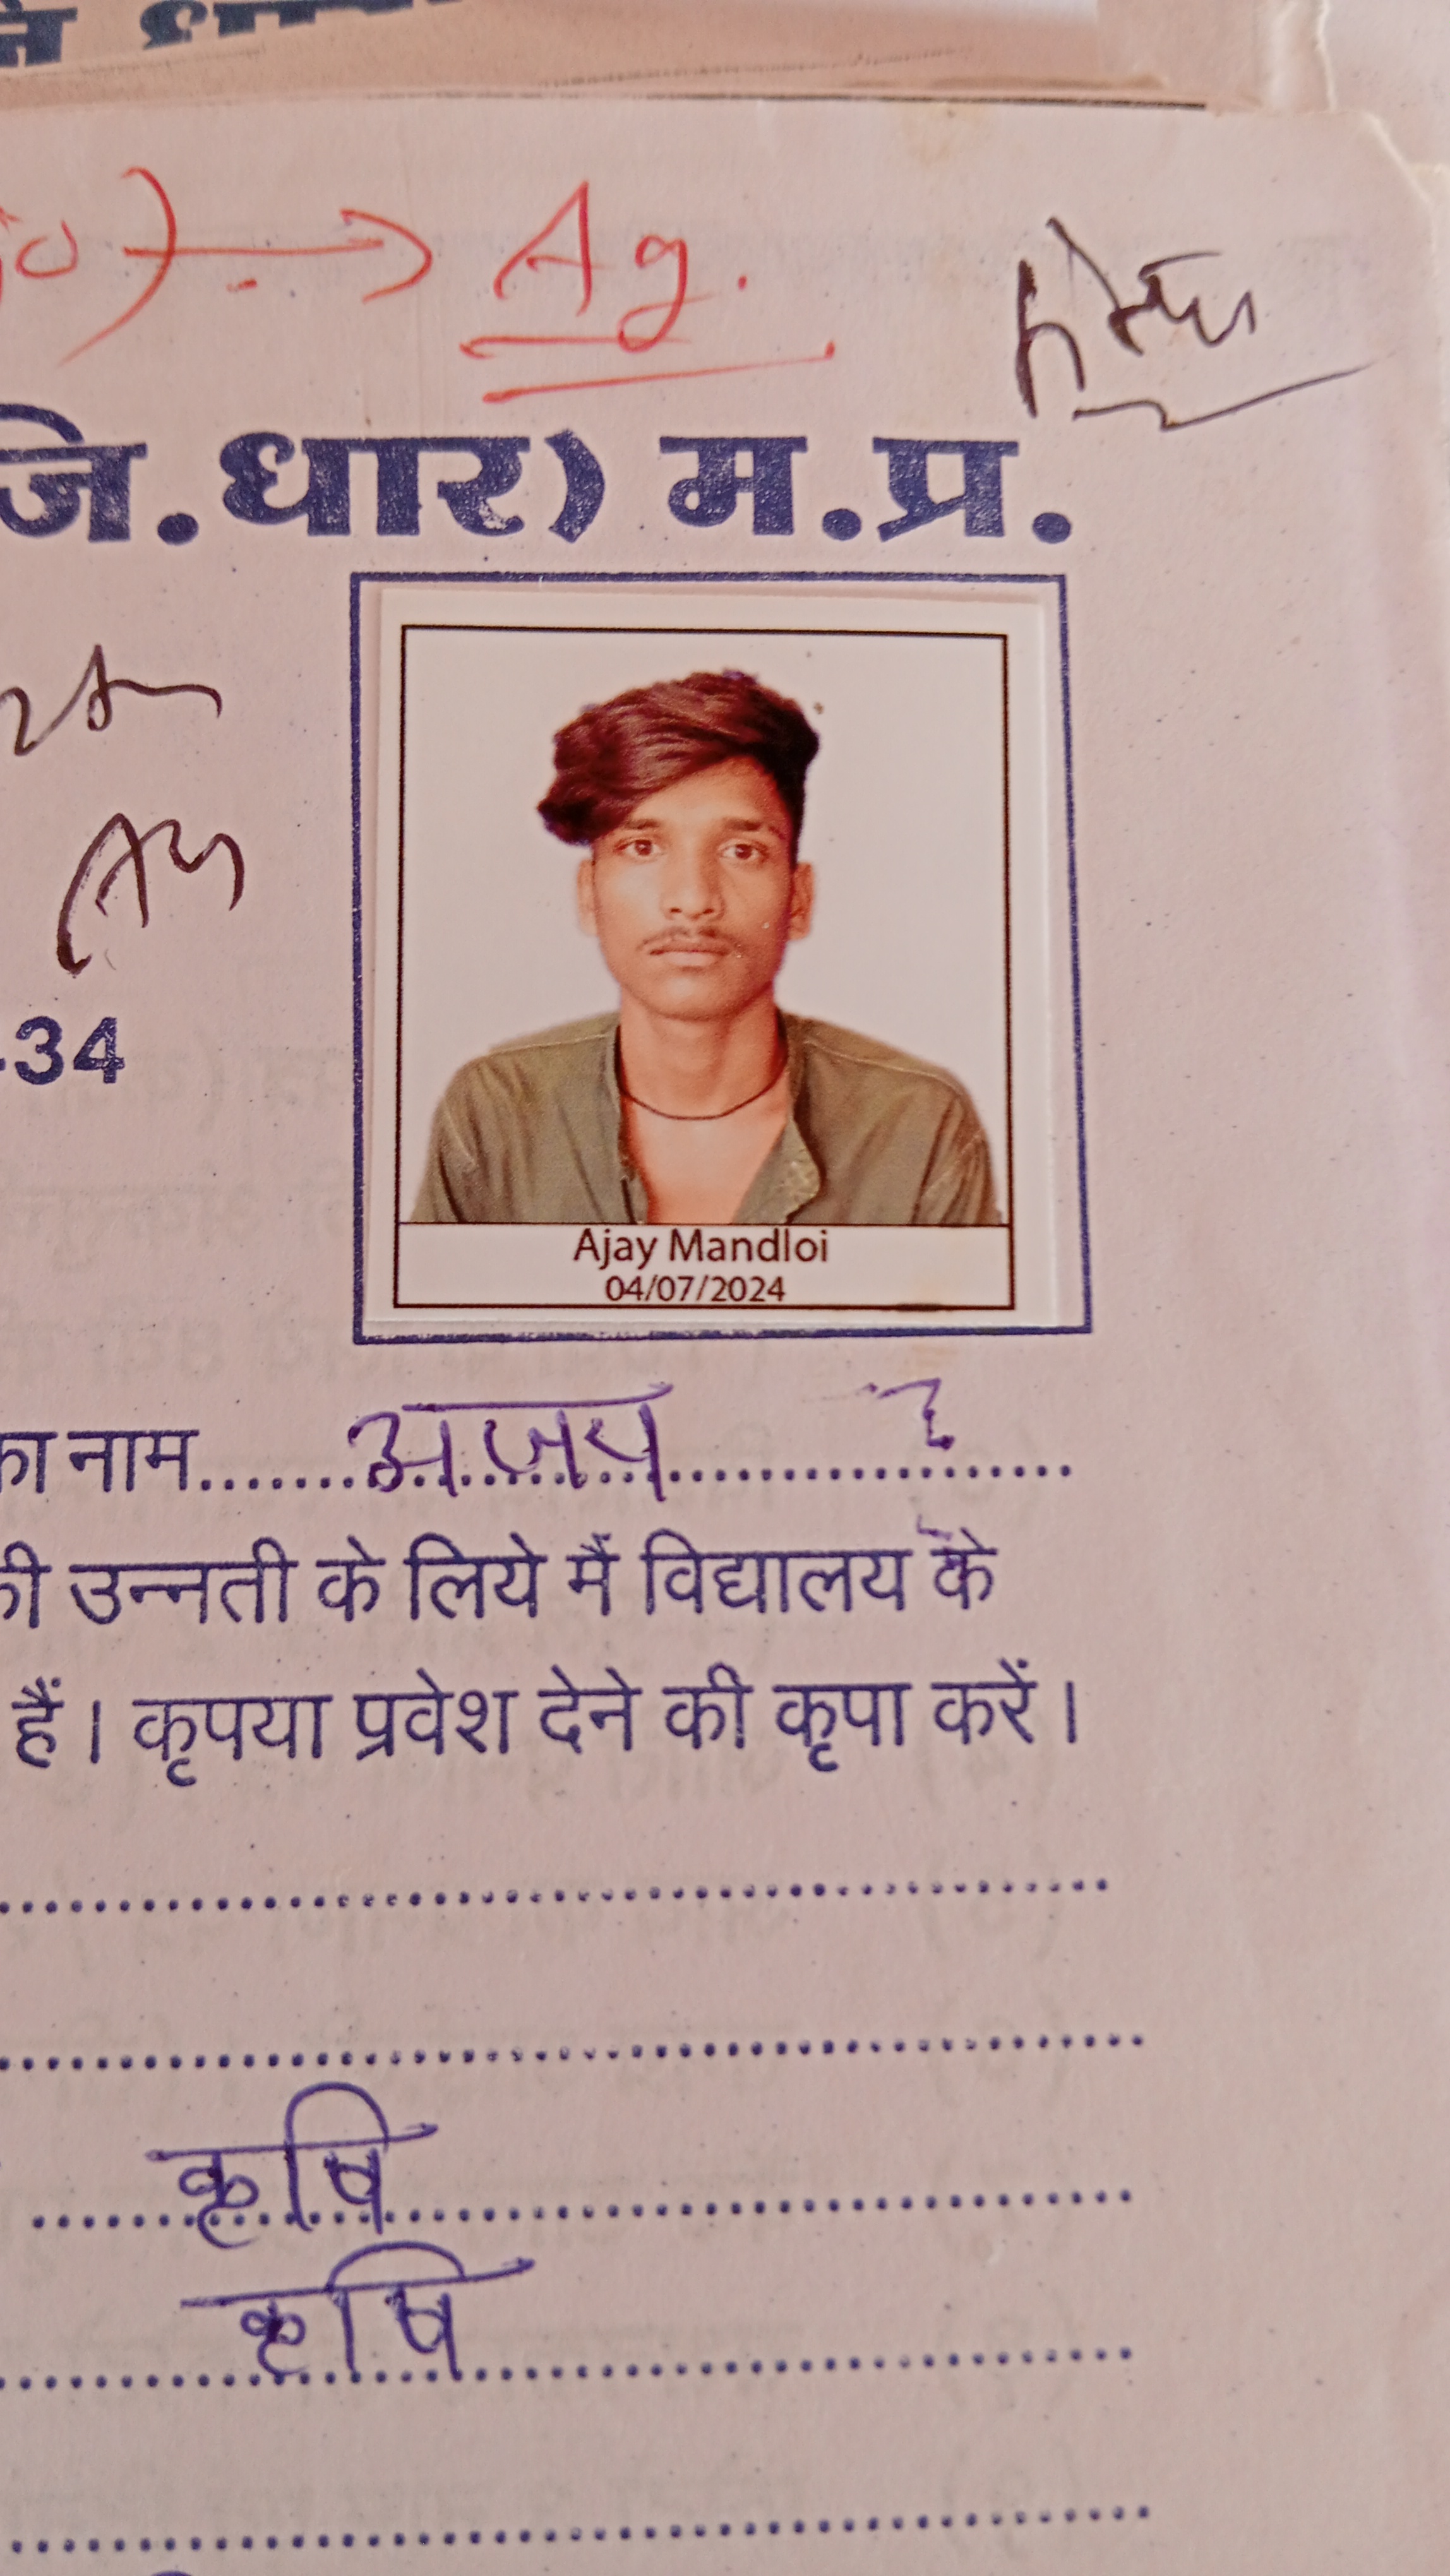 → Ag.
जि.धार) म.प्र.
-34
Ajay Mandloi
04/07/2024
का नाम....... अजय ..................
की उन्नती के लिये मैं विद्यालय के
हैं। कृपया प्रवेश देने की कृपा करें।
कृषि
कृषि